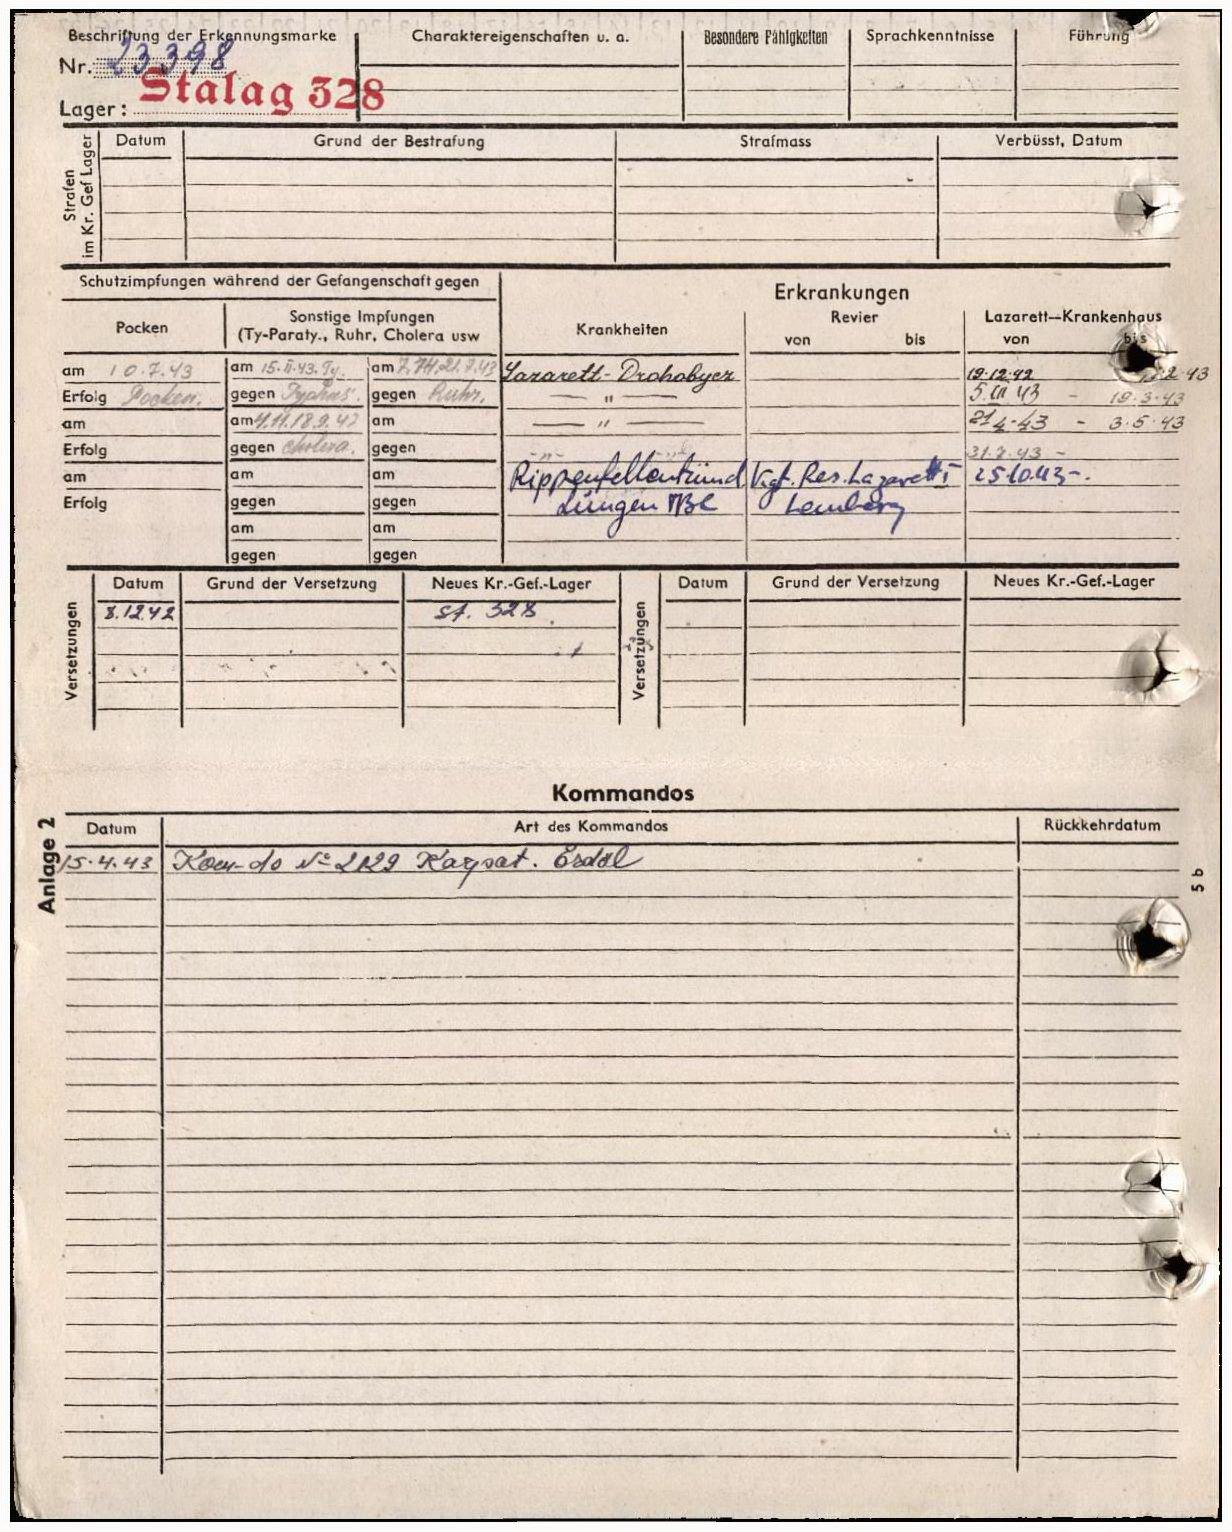 Beschriftung der Erkennungsmarke
Nr. 23398
Lager: Stalag 328
Charaktereigenschaften u. a.
Besondere Fähigkeiten
Sprachkenntnisse
Führung
Strafen
im Kr. Gef Lager
Datum
Grund der Bestrafung
Strafmass
Verbüsst, Datum
Schutzimpfungen während der Gefangenschaft gegen
Pocken
Sonstige Impfungen
(Ty-Paraty., Ruhr, Cholera usw
am 10.7.43
Erfolg Pocken.
am
Erfolg
am
Erfolg
am 15.II.43. Ty.
gegen Typhus.
am 4.11.18.9.42
gegen Cholera.
am
gegen
am
gegen
am 7.14.21.7.43
gegen Ruhr.
am
gegen
am
gegen
am
gegen
Erkrankungen
Krankheiten
Revier
von bis
Lazarett—Krankenhaus
von bis
Lazarett-Drohobycz 19.12.42 2.43
— " — 5.III 43 - 19.3.43
— " — 21 4-43 - 3.5.43
- " - 31.7.43 -
Rippenfellentzünd Kgf. Res. Lazarett I 25.10.43-.
Lungen Tbc Lemberg
Versetzungen
Datum
Grund der Versetzung
Neues Kr.-Gef.-Lager
8.12.42 St. 328
Versetzungen
Datum
Grund der Versetzung
Neues Kr.-Gef.-Lager
Kommandos
Anlage 2
Datum
Art des Kommandos
Rückkehrdatum
15.4.43 Kom-do № 2129 Karpat. Erdöl
5 b